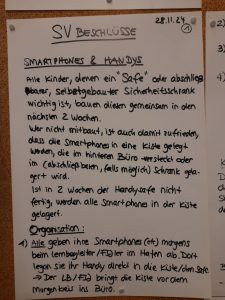 28.11.24
SV BESCHLÜSSE
①
SMARTPHONES & HANDYS
Alle Kinder, denen ein "Safe" oder abschließ
barer, selbstgebauter Sicherheitsschrank
wichtig ist, bauen diesen gemeinsam in den
nächsten 2 Wochen.
Wer nicht mitbaut, ist auch damit zufrieden,
dass die Smartphones in eine Kiste gelegt
werden, die im hinteren Büro versteckt oder
im (abschließbaren, falls möglich) Schrank gela-
gert wird.
Ist in 2 Wochen der Handysafe nicht
fertig, werden alle Smartphones in der Kiste
gelagert.
Organisation:
1) Alle geben ihre Smartphones (etc) morgens
beim Lernbegleiter/FSJler im Hafen ab. Dort
legen sie ihr Handy direkt in die Kiste/den Safe.
→ Der LB/FSJ bringt die Kiste vor dem
Morgenkreis ins Büro.
2)
3)
4)